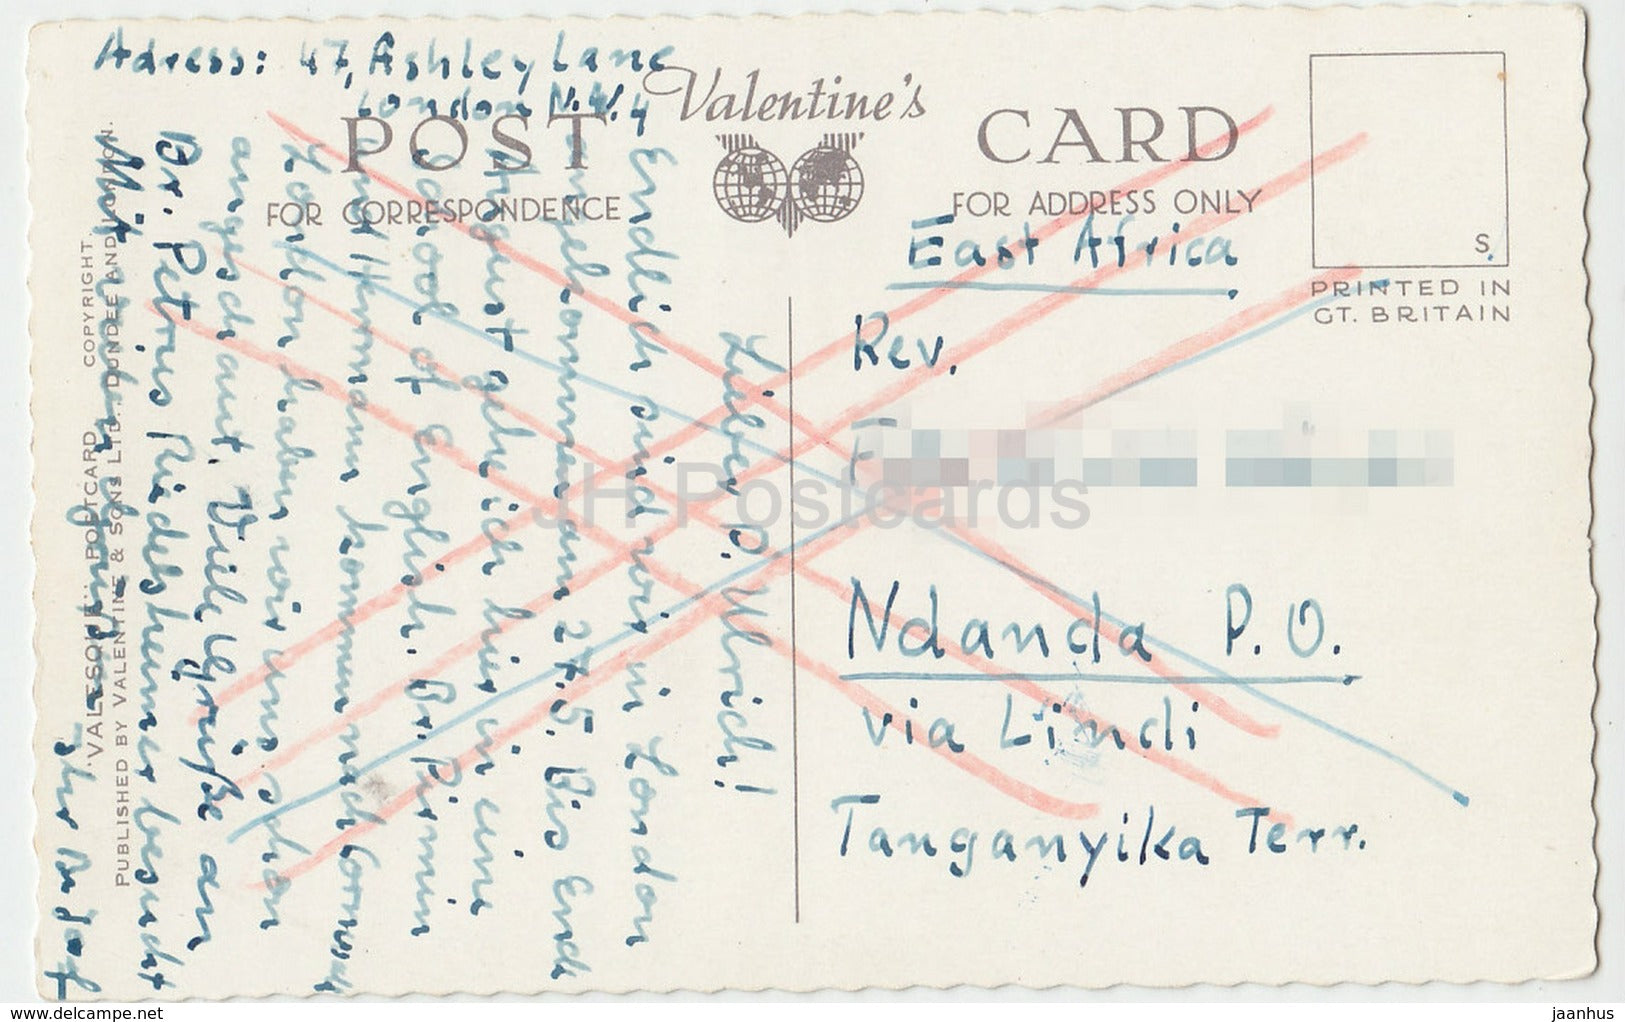 Adress: 47, Ashley Lane
London N.W. 4
Valentine's
POST CARD
FOR CORRESPONDENCE
FOR ADDRESS ONLY
S.
PRINTED IN
GT. BRITAIN
Lieber P. Ulrich!
Endlich sind wir in London
angekommen am 27.5. Bis Ende
August gehe ich hier in eine
School of English. Br. Pirmin
und Hermann kommen nach Cornwall
London haben wir uns schon
angeschaut. Viele Grüße an
Br. Petrus Riedelsheimer besucht
Mit
Ihr Br Josef
East Africa
Rev.
F
Ndanda P.O.
via Lindi
Tanganyika Terr.
"VALESQUE" POSTCARD COPYRIGHT
PUBLISHED BY VALENTINE & SONS LTD., DUNDEE AND LONDON.
JH Postcards
www.delcampe.net
jaanhus